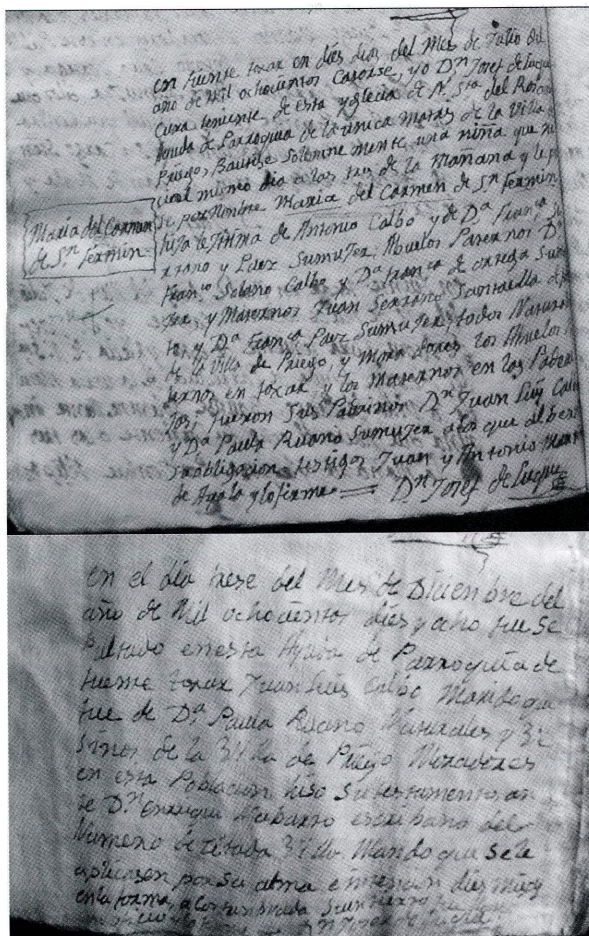 en fuente toxar en dies dias del Mes de Julio del
año de Mil ochocientos Catorse, yo Dn Josef de Luque
Cura teniente de esta yglecia de N. Sra del Rosar
Ayuda de Parroquia de la unica Matas de la Villa
Priego, Bautise Solemne mente, una niña que na
cio el mismo dia a las tres de la Mañana y le p
se por Nombre Maria del Carmen de Sn Fermin
hija letima de Antonio Calbo y de Da Franca
rrano y Paez Sumujer, Abuelos Paternos Dn
Franco Solano Calbo y Da Franca de Su
jer, y Maternos Juan Serrano
y Da Franca Paez Sumujer todos Natura
de la Villa de Priego, y Mora dores los Abuelos
ternos en toxar y los Maternos en las Pabe
fueron Sus Padrinos Dn Juan Luis Calbo
y Da Paula Ruano Sumujer a los que
obligacion testigos Juan y Antonio
de y lo firme = Dn Josef de Luque
Maria del Carmen
de Sn Fermin
en el dia trese del Mes de Diciembre del
año de Mil ochocientos dies y ocho fue Se
pultado en esta Ayuda de Parroquia de
fuente toxar Juan Luis Calbo Marido que
fue de Da Paula Ruano Naturales y Be
sinos de la Billa de Priego Moradores
en esta Poblacion hiso Su testamento an
te Dn enrique Nabarro escribano del
Numero de citada Billa Mando que Se le
aplicasen por Su alma e intencion dies Misas
en la forma acostumbrada Su entierro